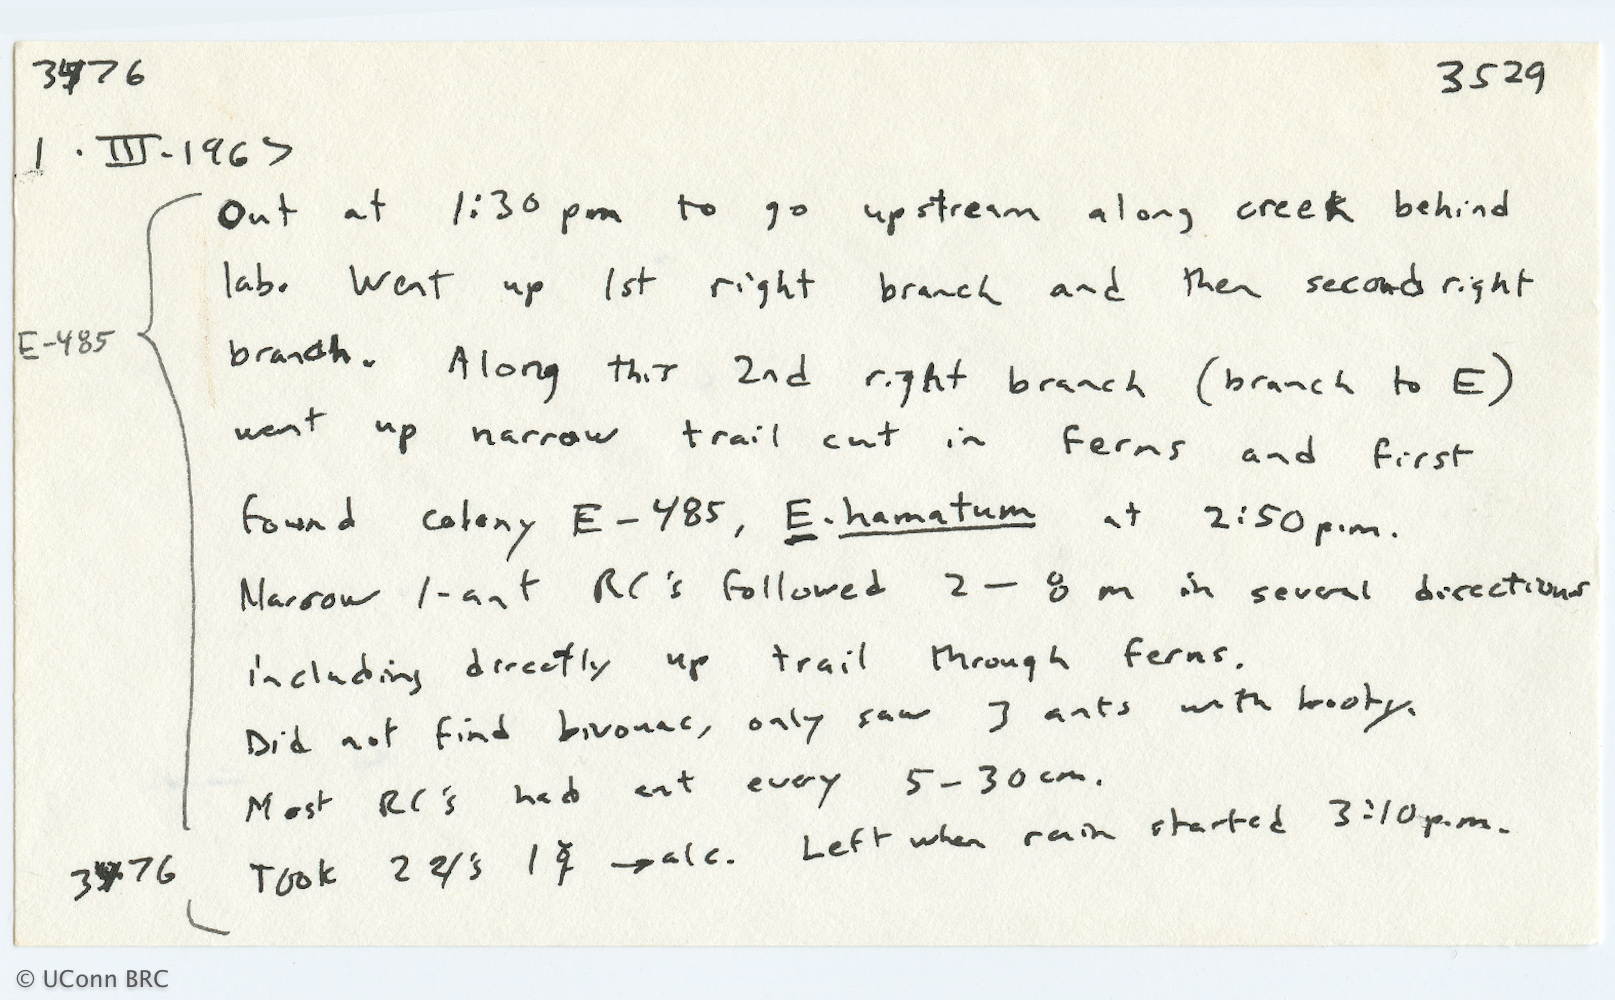 3476 3529
1 · III-1967
Out at 1:30 pm to go upstream along creek behind
lab. Went up 1st right branch and then second right
E-485
branch. Along this 2nd right branch (branch to E)
went up narrow trail cut in ferns and first
found colony E-485, E. hamatum at 2:50 p.m.
Narrow 1-ant RC's followed 2-8 m in several directions
including directly up trail through ferns.
Did not find bivouac, only saw 3 ants with booty.
Most RC's had ant every 5-30 cm.
3476 Took 2 1 ☿ → alc. Left when rain started 3:10 p.m.
© UConn BRC